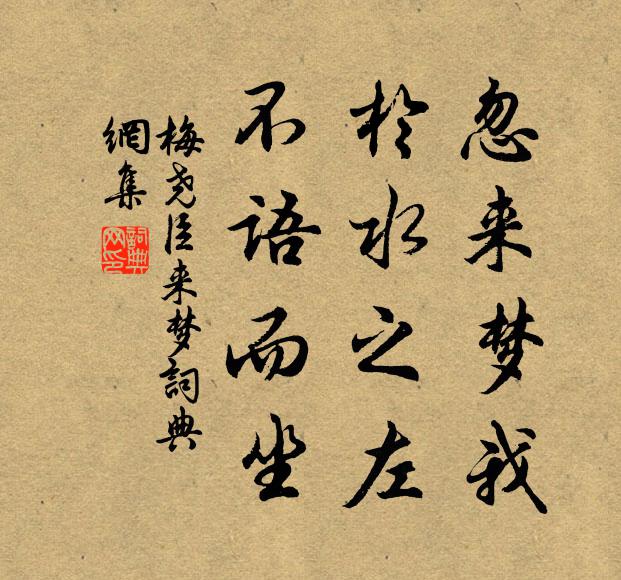 忽来梦我
於水之左
不語而坐
梅尧臣来梦詞典
網集
詞典
网印